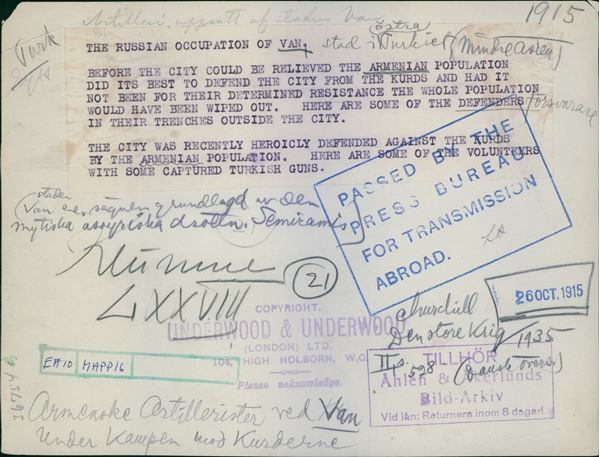 1915
Turk
THE RUSSIAN OCCUPATION OF VAN, stad i östra Turkiet (Mindre Asien)
BEFORE THE CITY COULD BE RELIEVED THE ARMENIAN POPULATION
DID ITS BEST TO DEFEND THE CITY FROM THE KURDS AND HAD IT
NOT BEEN FOR THEIR DETERMINED RESISTANCE THE WHOLE POPULATION
WOULD HAVE BEEN WIPED OUT. HERE ARE SOME OF THE DEFENDERS försvarare
IN THEIR TRENCHES OUTSIDE THE CITY.
THE CITY WAS RECENTLY HEROICLY DEFENDED AGAINST THE KURDS
BY THE ARMENIAN POPULATION. HERE ARE SOME OF THE VOLUNTEERS
WITH SOME CAPTURED TURKISH GUNS.
PASSED BY THE
PRESS BUREAU
FOR TRANSMISSION
ABROAD.
staden
Van enl. sägnen grundlagd av den
mytiska assyriska drottn. Semiramis
21
LXXVIII
26 OCT. 1915
COPYRIGHT.
UNDERWOOD & UNDERWOOD
(LONDON) LTD.
104, HIGH HOLBORN, W.C.
Please acknowledge.
Churchill
Den store Krig 1935
II s. 528 (Dansk övers.)
TILLHÖR
Åhlén & Åkerlunds
Bild-Arkiv
Vid lån: Returnera inom 8 dagar!
EA10 MAPP16
Armenske Artillerister ved Van
under Kampen mod Kurderne